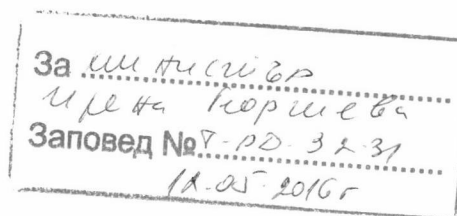 За министър
Ирена Георгиева
Заповед № Т-РД-32-31
12.05.2016г